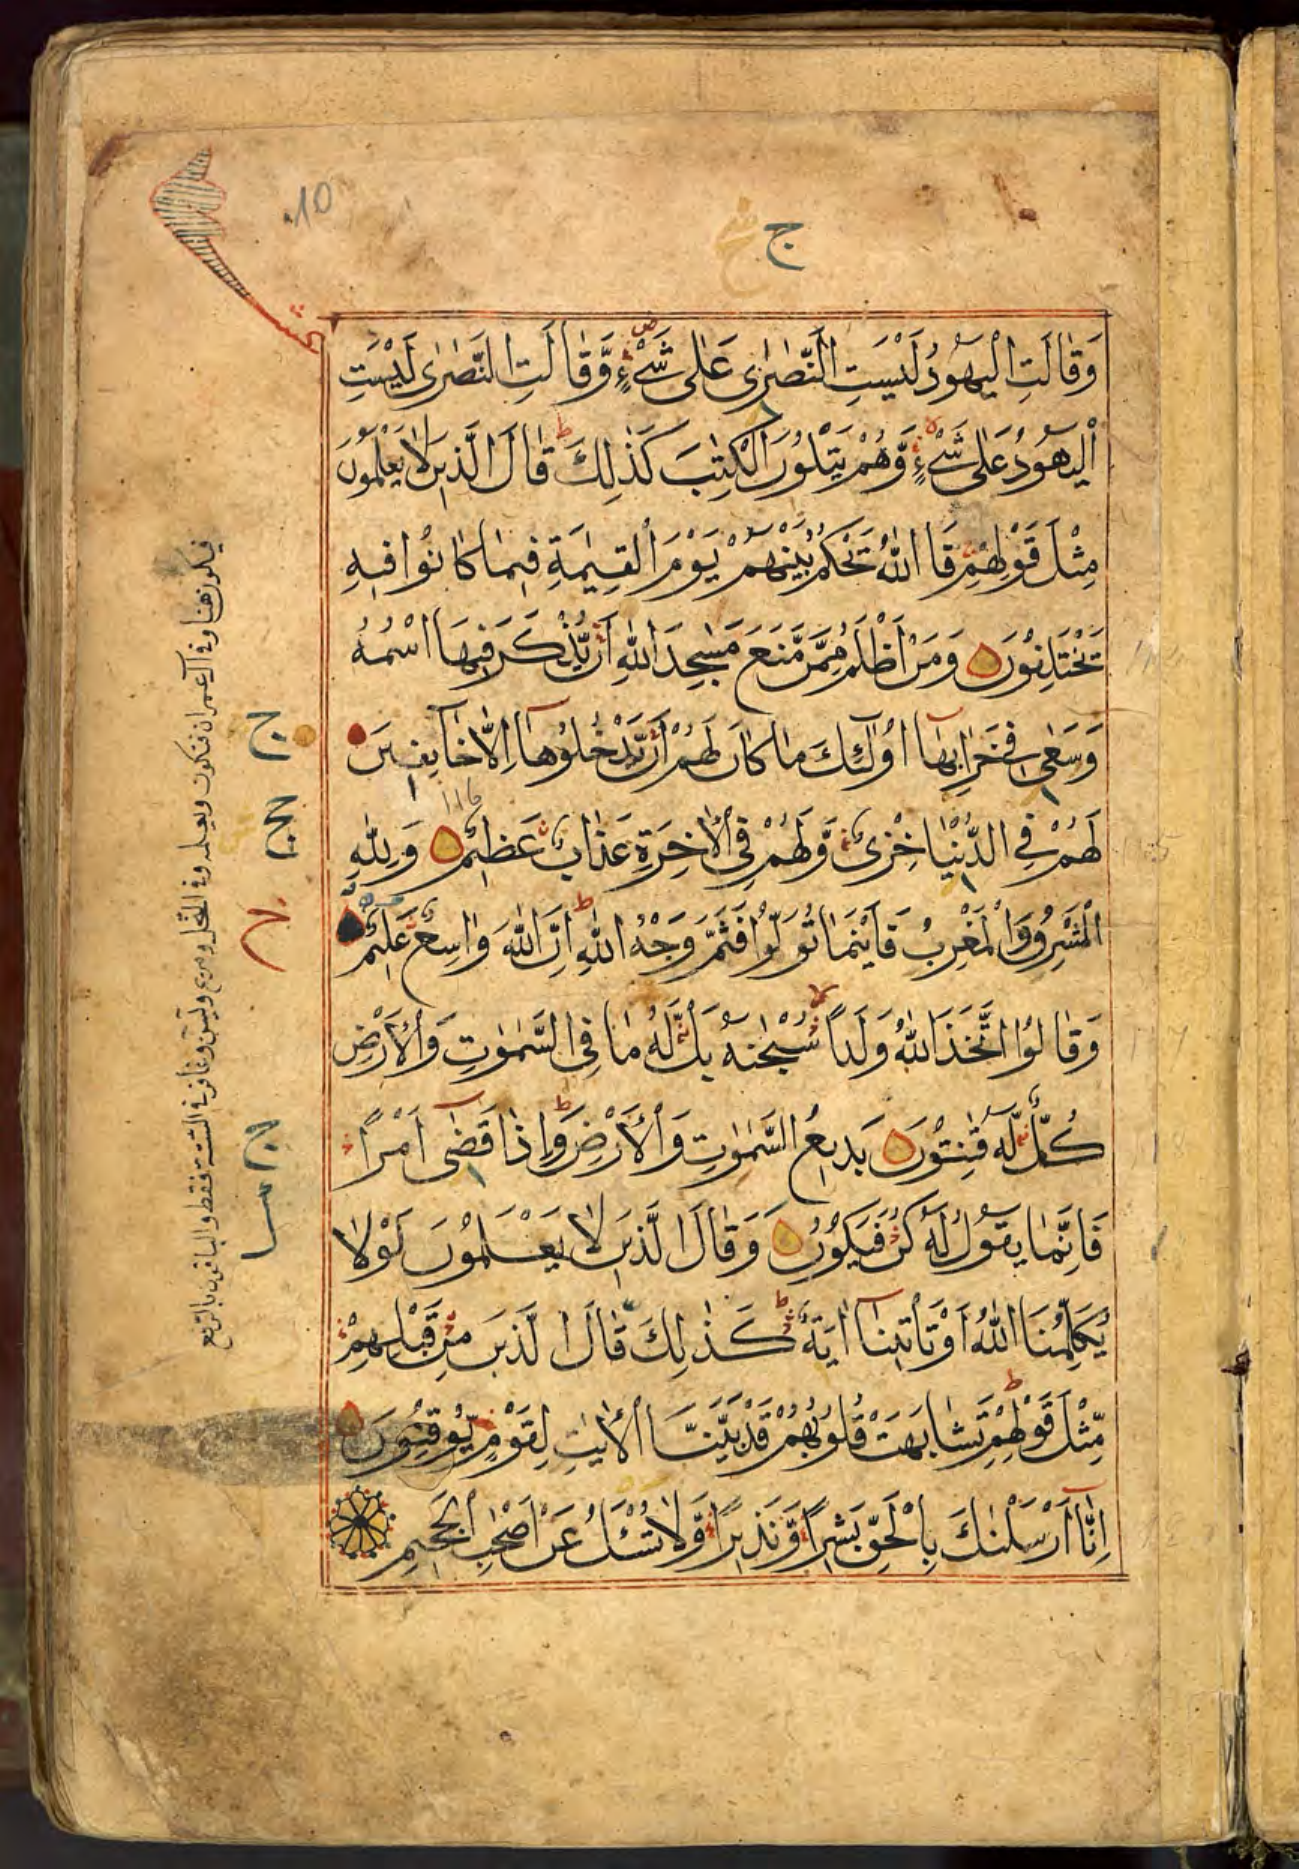 10
ج
وَقَالَتِ الْيَهُودُ لَيْسَتِ النَّصٰرٰى عَلٰى شَىْءٍ وَّقَالَتِ النَّصٰرٰى لَيْسَتِ
الْيَهُودُ عَلٰى شَىْءٍ وَّهُمْ يَتْلُونَ الْكِتٰبَ كَذٰلِكَ قَالَ الَّذِينَ لَا يَعْلَمُونَ
مِثْلَ قَوْلِهِمْ فَاللّٰهُ يَحْكُمُ بَيْنَهُمْ يَوْمَ الْقِيٰمَةِ فِيمَا كَانُوا فِيهِ
يَخْتَلِفُونَ وَمَنْ اَظْلَمُ مِمَّنْ مَّنَعَ مَسٰجِدَ اللّٰهِ اَنْ يُّذْكَرَ فِيهَا اسْمُهُ
وَسَعٰى فِى خَرَابِهَا اُولٰٓئِكَ مَا كَانَ لَهُمْ اَنْ يَّدْخُلُوهَا اِلَّا خَآئِفِينَ
لَهُمْ فِى الدُّنْيَا خِزْىٌ وَّلَهُمْ فِى الْاٰخِرَةِ عَذَابٌ عَظِيمٌ وَلِلّٰهِ
الْمَشْرِقُ وَالْمَغْرِبُ فَاَيْنَمَا تُوَلُّوا فَثَمَّ وَجْهُ اللّٰهِ اِنَّ اللّٰهَ وَاسِعٌ عَلِيمٌ
وَقَالُوا اتَّخَذَ اللّٰهُ وَلَدًا سُبْحٰنَهُ بَلْ لَّهُ مَا فِى السَّمٰوٰتِ وَالْاَرْضِ
كُلٌّ لَّهُ قٰنِتُونَ بَدِيعُ السَّمٰوٰتِ وَالْاَرْضِ وَاِذَا قَضٰٓى اَمْرًا
فَاِنَّمَا يَقُولُ لَهُ كُنْ فَيَكُونُ وَقَالَ الَّذِينَ لَا يَعْلَمُونَ لَوْلَا
يُكَلِّمُنَا اللّٰهُ اَوْ تَاْتِينَآ اٰيَةٌ كَذٰلِكَ قَالَ الَّذِينَ مِنْ قَبْلِهِمْ
مِّثْلَ قَوْلِهِمْ تَشَابَهَتْ قُلُوبُهُمْ قَدْ بَيَّنَّا الْاٰيٰتِ لِقَوْمٍ يُّوقِنُونَ
اِنَّآ اَرْسَلْنٰكَ بِالْحَقِّ بَشِيرًا وَّنَذِيرًا وَّلَا تُسْئَلُ عَنْ اَصْحٰبِ الْجَحِيمِ
ج
ج
ج
116
فيكون هنا وفى آل عمران فيكون ويعلمه وفى النحل ومريم ويس وغافر فى الستة فقط والباقون بالرفع